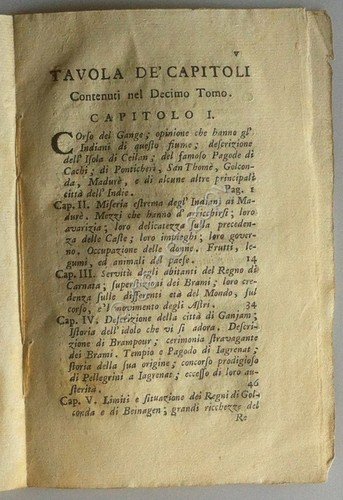 v
TAVOLA DE' CAPITOLI
Contenuti nel Decimo Tomo.
CAPITOLO I.
Corso del Gange; opinione che hanno gl'
Indiani di questo fiume; descrizione
dell' Isola di Ceilan; del famoso Pagode di
Cachi; di Ponticheri, San Thomè, Golcon-
da, Madurè, e di alcune altre principali
città dell' Indie. Pag. 1
Cap. II. Miseria estrema degl' Indiani di Ma-
durè. Mezzi che hanno d'arricchirsi; loro
avarizia; loro delicatezza sulla preceden-
za delle Caste; loro impieghi; loro gover-
no. Occupazione delle donne. Frutti, le-
gumi, ed animali del paese. 14
Cap. III. Servitù degli abitanti del Regno di
Carnata; superstizioni dei Brami; loro cre-
denza sulle differenti età del Mondo, sul
corso, e'l movimento degli Astri. 34
Cap. IV. Descrizione della città di Ganjam;
Istoria dell' idolo che vi si adora. Descri-
zione di Brampour; cerimonia stravagante
dei Brami. Tempio e Pagodo di Iagrenat;
storia della sua origine; concorso prodigioso
di Pellegrini a Iagrenat; eccesso di loro au-
sterità. 46
Cap. V. Limiti e situazione dei Regni di Gol-
conda e di Beinagen; grandi ricchezze del
Re